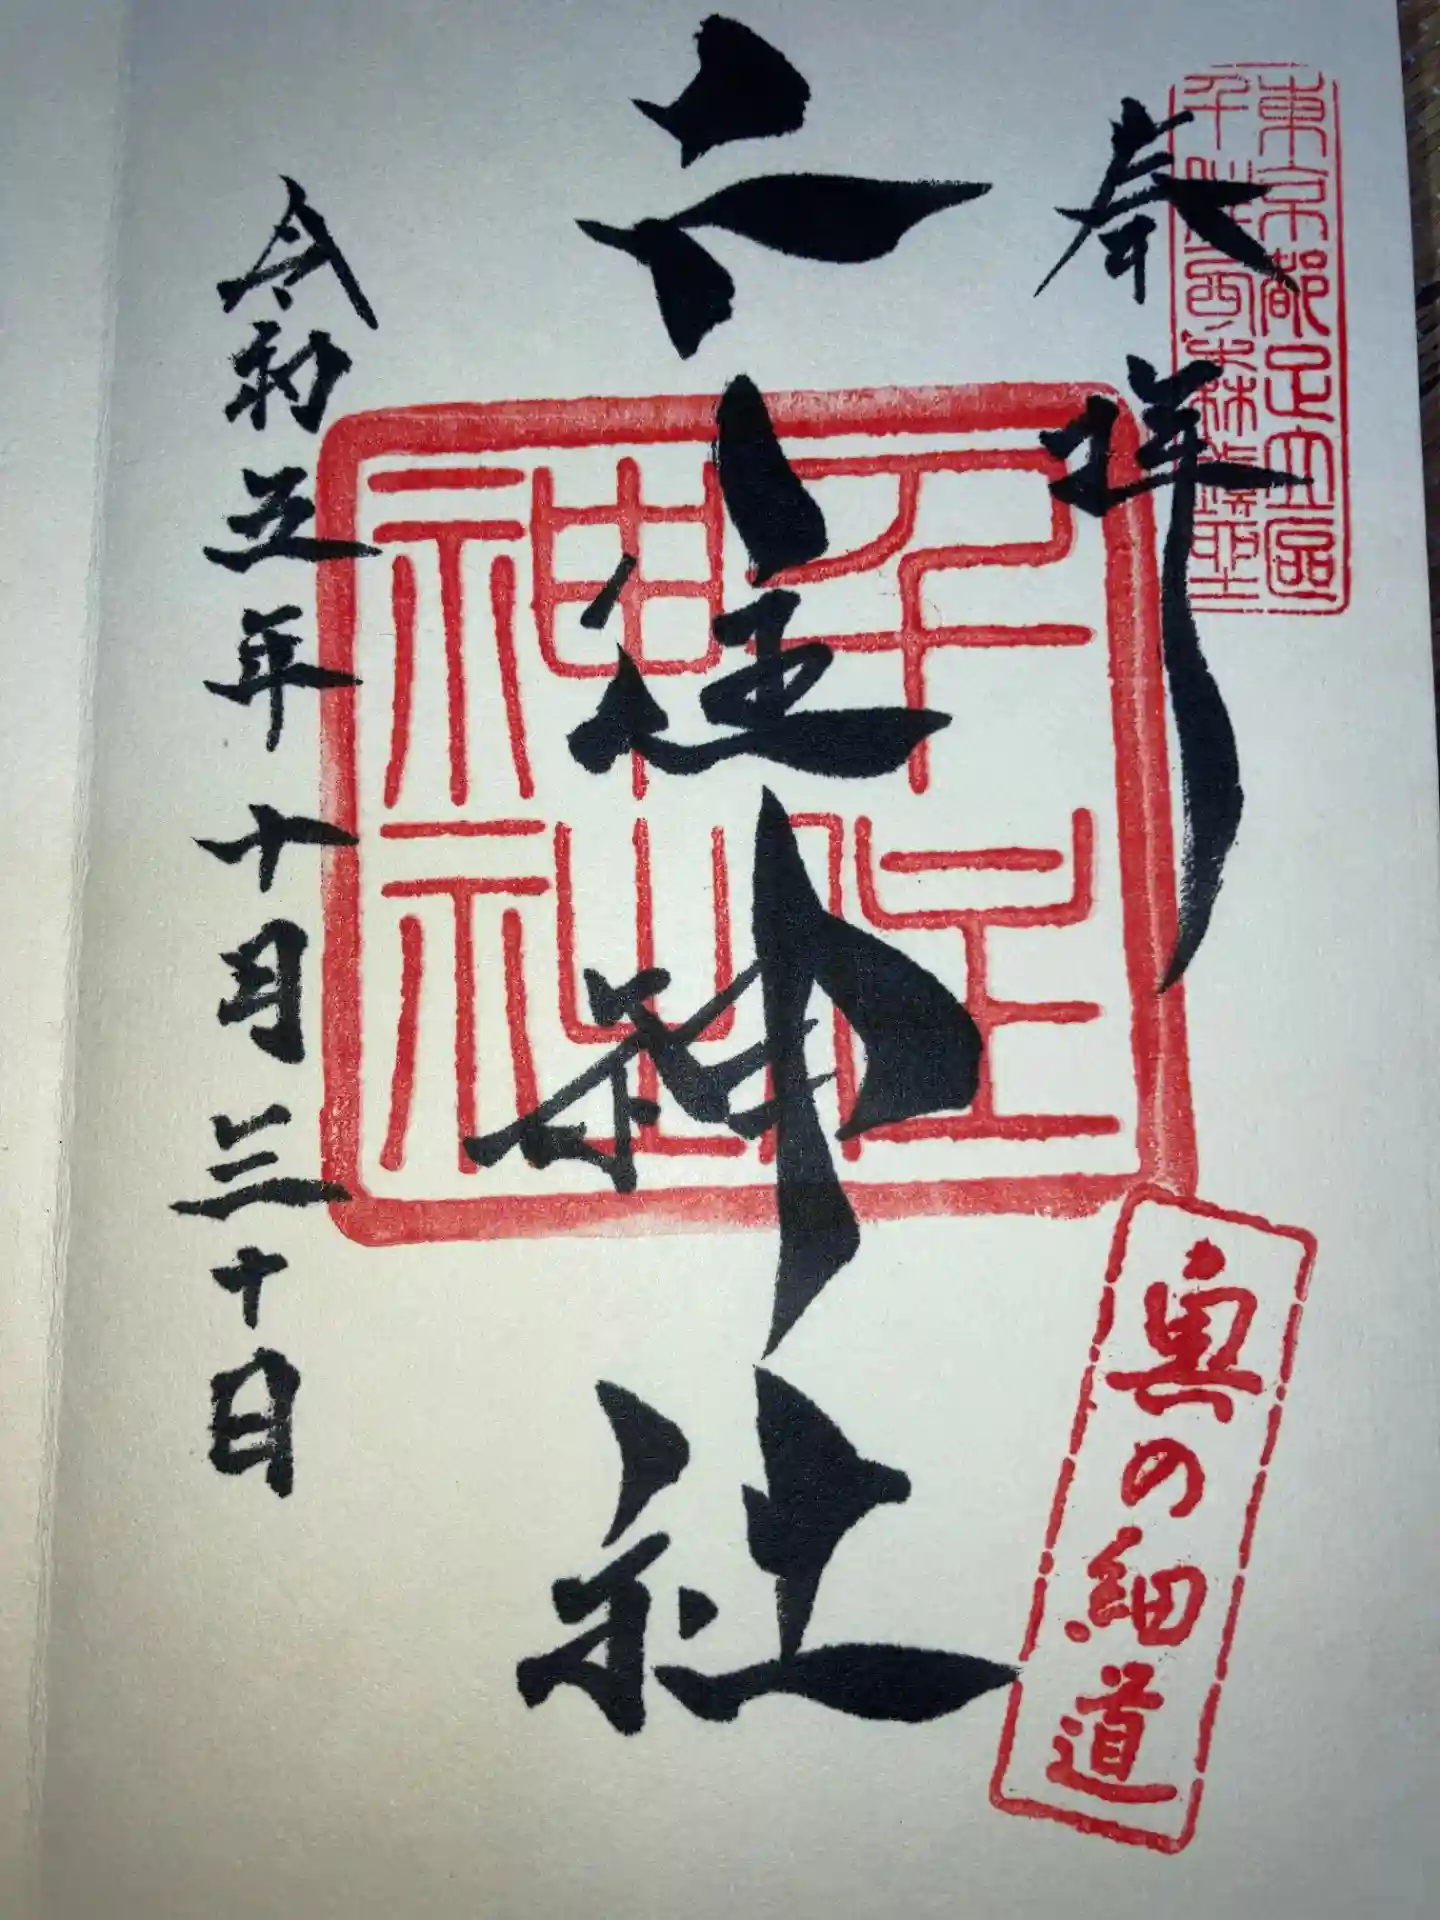 東京都足立區
千住西森鎮座
奉拝
千住神社
千住
神社
令和五年十月三十日
奥の細道